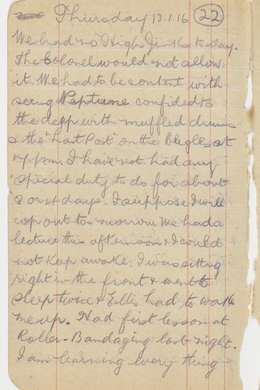 Thursday 13.1.16 (22)
We had no High Jinks today.
The Colonel would not allow
it. We had to be content with
seeing Neptune confided to
the depp with muffled drums
& the "Last Post" on the bugles at
7 p.m. I have not had any
special duty to do for about
2 or 3 days. I suppose I will
cop out to-morrow. We had a
lecture this afternoon & I could
not keep awake. I was sitting
right in the front & went to
sleep twice & Ellis had to wake
me up. Had first lesson at
Roller-Bandaging last night.
I am learning every thing